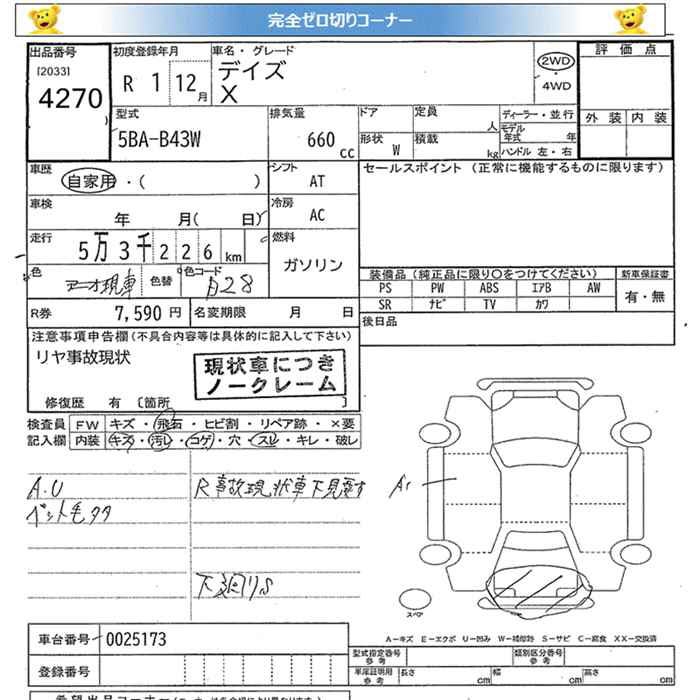 完全ゼロ切りコーナー
出品番号 初度登録年月 車名・グレード 評価点
[2033] デイズ 2WD
4270 R 1 12月 X 4WD
型式 排気量 ドア 定員 人 ディーラー・並行 外装 内装
5BA-B43W 660cc 形状 W 積載 kg モデル年式 年
ハンドル 左・右
車歴 シフト セールスポイント (正常に機能するものに限ります)
自家用・( ) AT
車検 冷房
年 月( 日) AC
走行 燃料
5万3千226km ガソリン
色 色替 色コード 装備品 (純正品に限り〇をつけてください) 新車保証書
B28 PS PW ABS エアB AW 有・無
SR ナビ TV カワ
R券 7,590円 名変期限 月 日 後日品
注意事項申告欄 (不具合内容等は具体的に記入して下さい)
リヤ事故現状
現状車につき
ノークレーム
修復歴 有 〔箇所 〕
検査員 FW キズ・飛石・ヒビ割・リペア跡・×要
記入欄 内装 キズ・汚レ・コゲ・穴・スレ・キレ・破レ
A.U R事故現状車下見要す
A1
下廻りS
スペア
A-キズ E-エクボ U-凹み W-補修跡 S-サビ C-腐食 XX-交換済
車台番号 0025173 型式指定番号 参考 類別区分番号 参考
登録番号 車庫証明用 参考 長さ cm 幅 cm 高さ cm